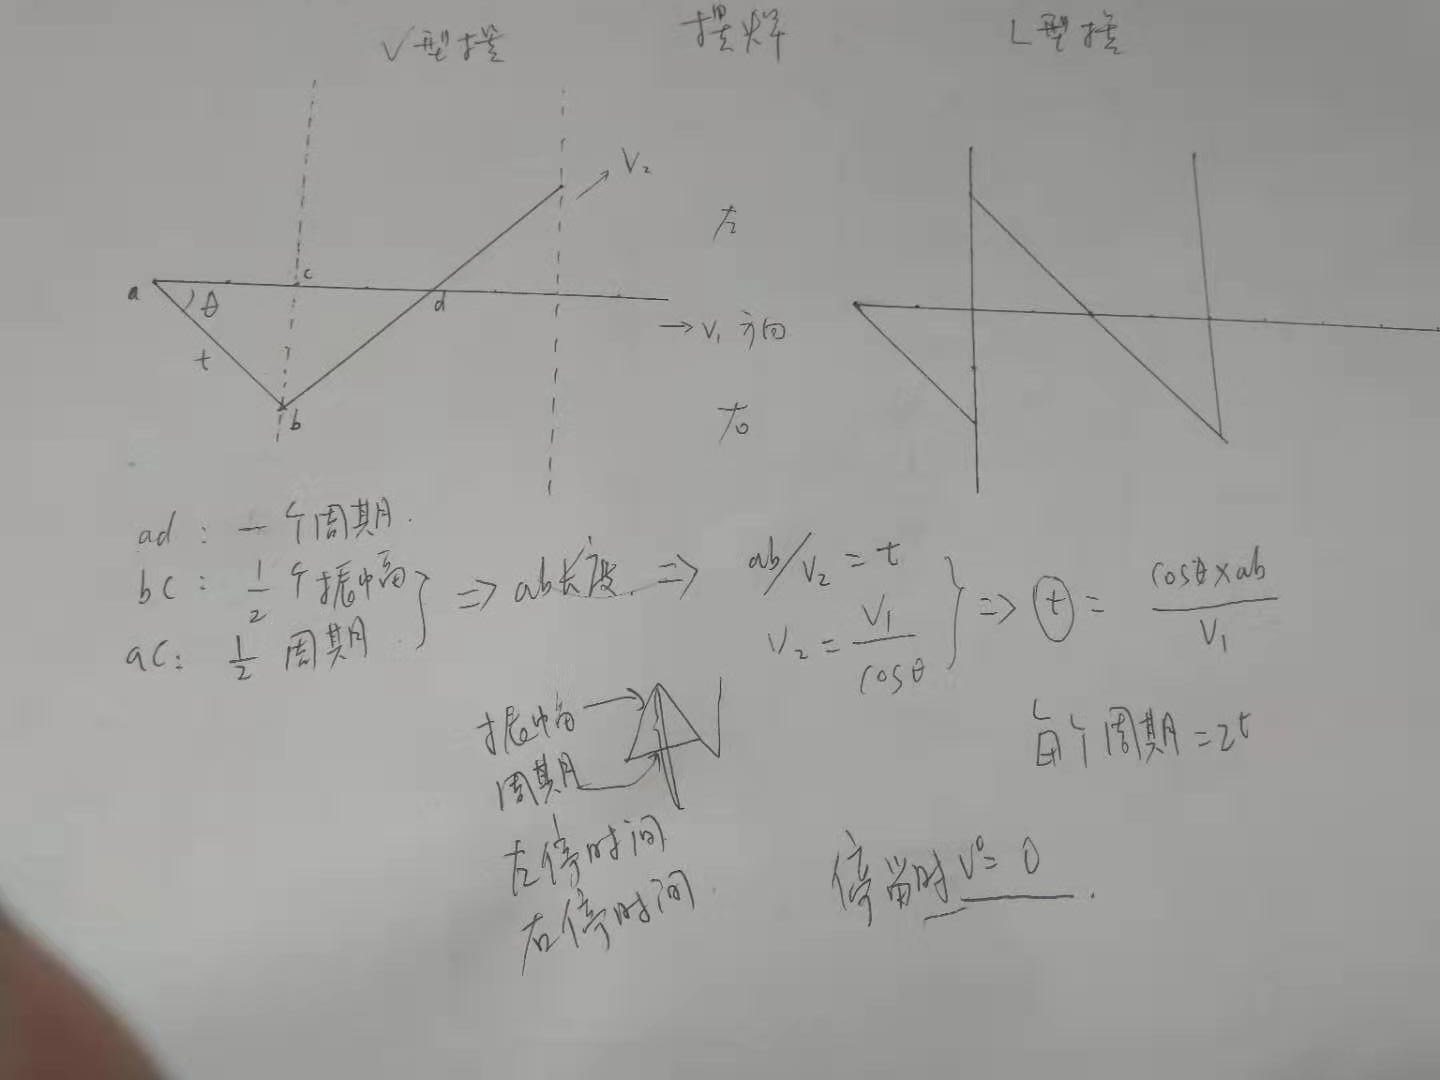 V型摆
摆焊
L型摆
V₂
左
a
θ
c
d
t
b
→V₁方向
右
ad: 一个周期.
bc: 1/2个振幅
ac: 1/2周期
=> ab长度. =>
ab/V₂ = t
V₂ = V₁/cosθ
=> t = cosθ×ab/V₁
每个周期=2t
振幅
周期
左停时间
右停时间.
停留时V=0.